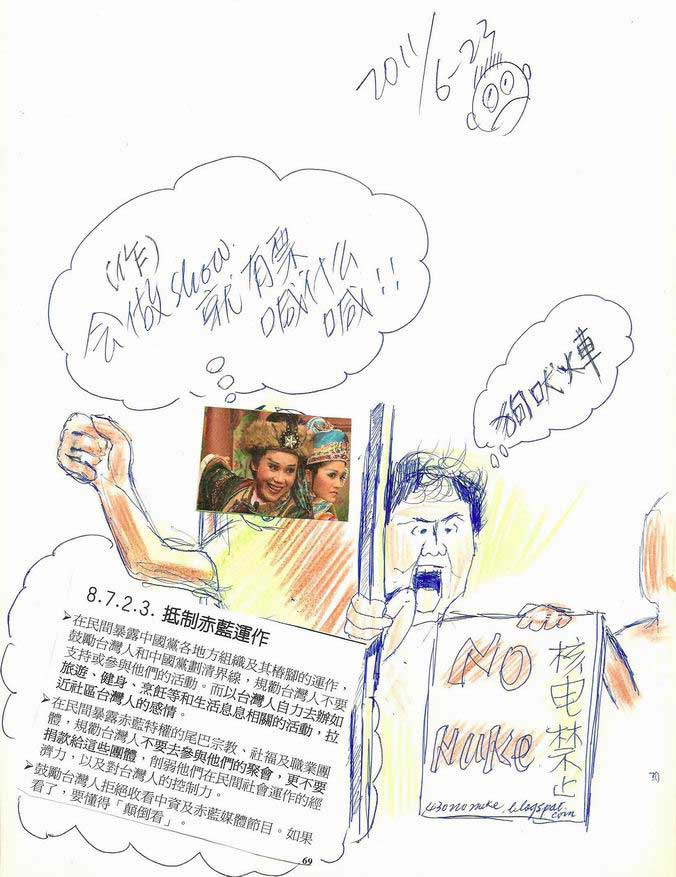 2011/6-23
(作)
会做show.
就有票
喊什么
喊!!
狗吠火車
8.7.2.3. 抵制赤藍運作
➢在民間暴露中國黨各地方組織及其樁腳的運作，
鼓勵台灣人和中國黨劃清界線，規勸台灣人不要
支持或參與他們的活動。而以台灣人自力去辦如
旅遊、健身、烹飪等和生活息息相關的活動，拉
近社區台灣人的感情。
➢在民間暴露赤藍特權的尾巴宗教、社福及職業團
體，規勸台灣人不要去參與他們的聚會，更不要
捐款給這些團體，削弱他們在民間社會運作的經
濟力，以及對台灣人的控制力。
➢鼓勵台灣人拒絕收看中資及赤藍媒體節目。如果
看了，要懂得「顛倒看」。
69
NO
NUKe
核电禁止
430nonuke.blogspot.
com